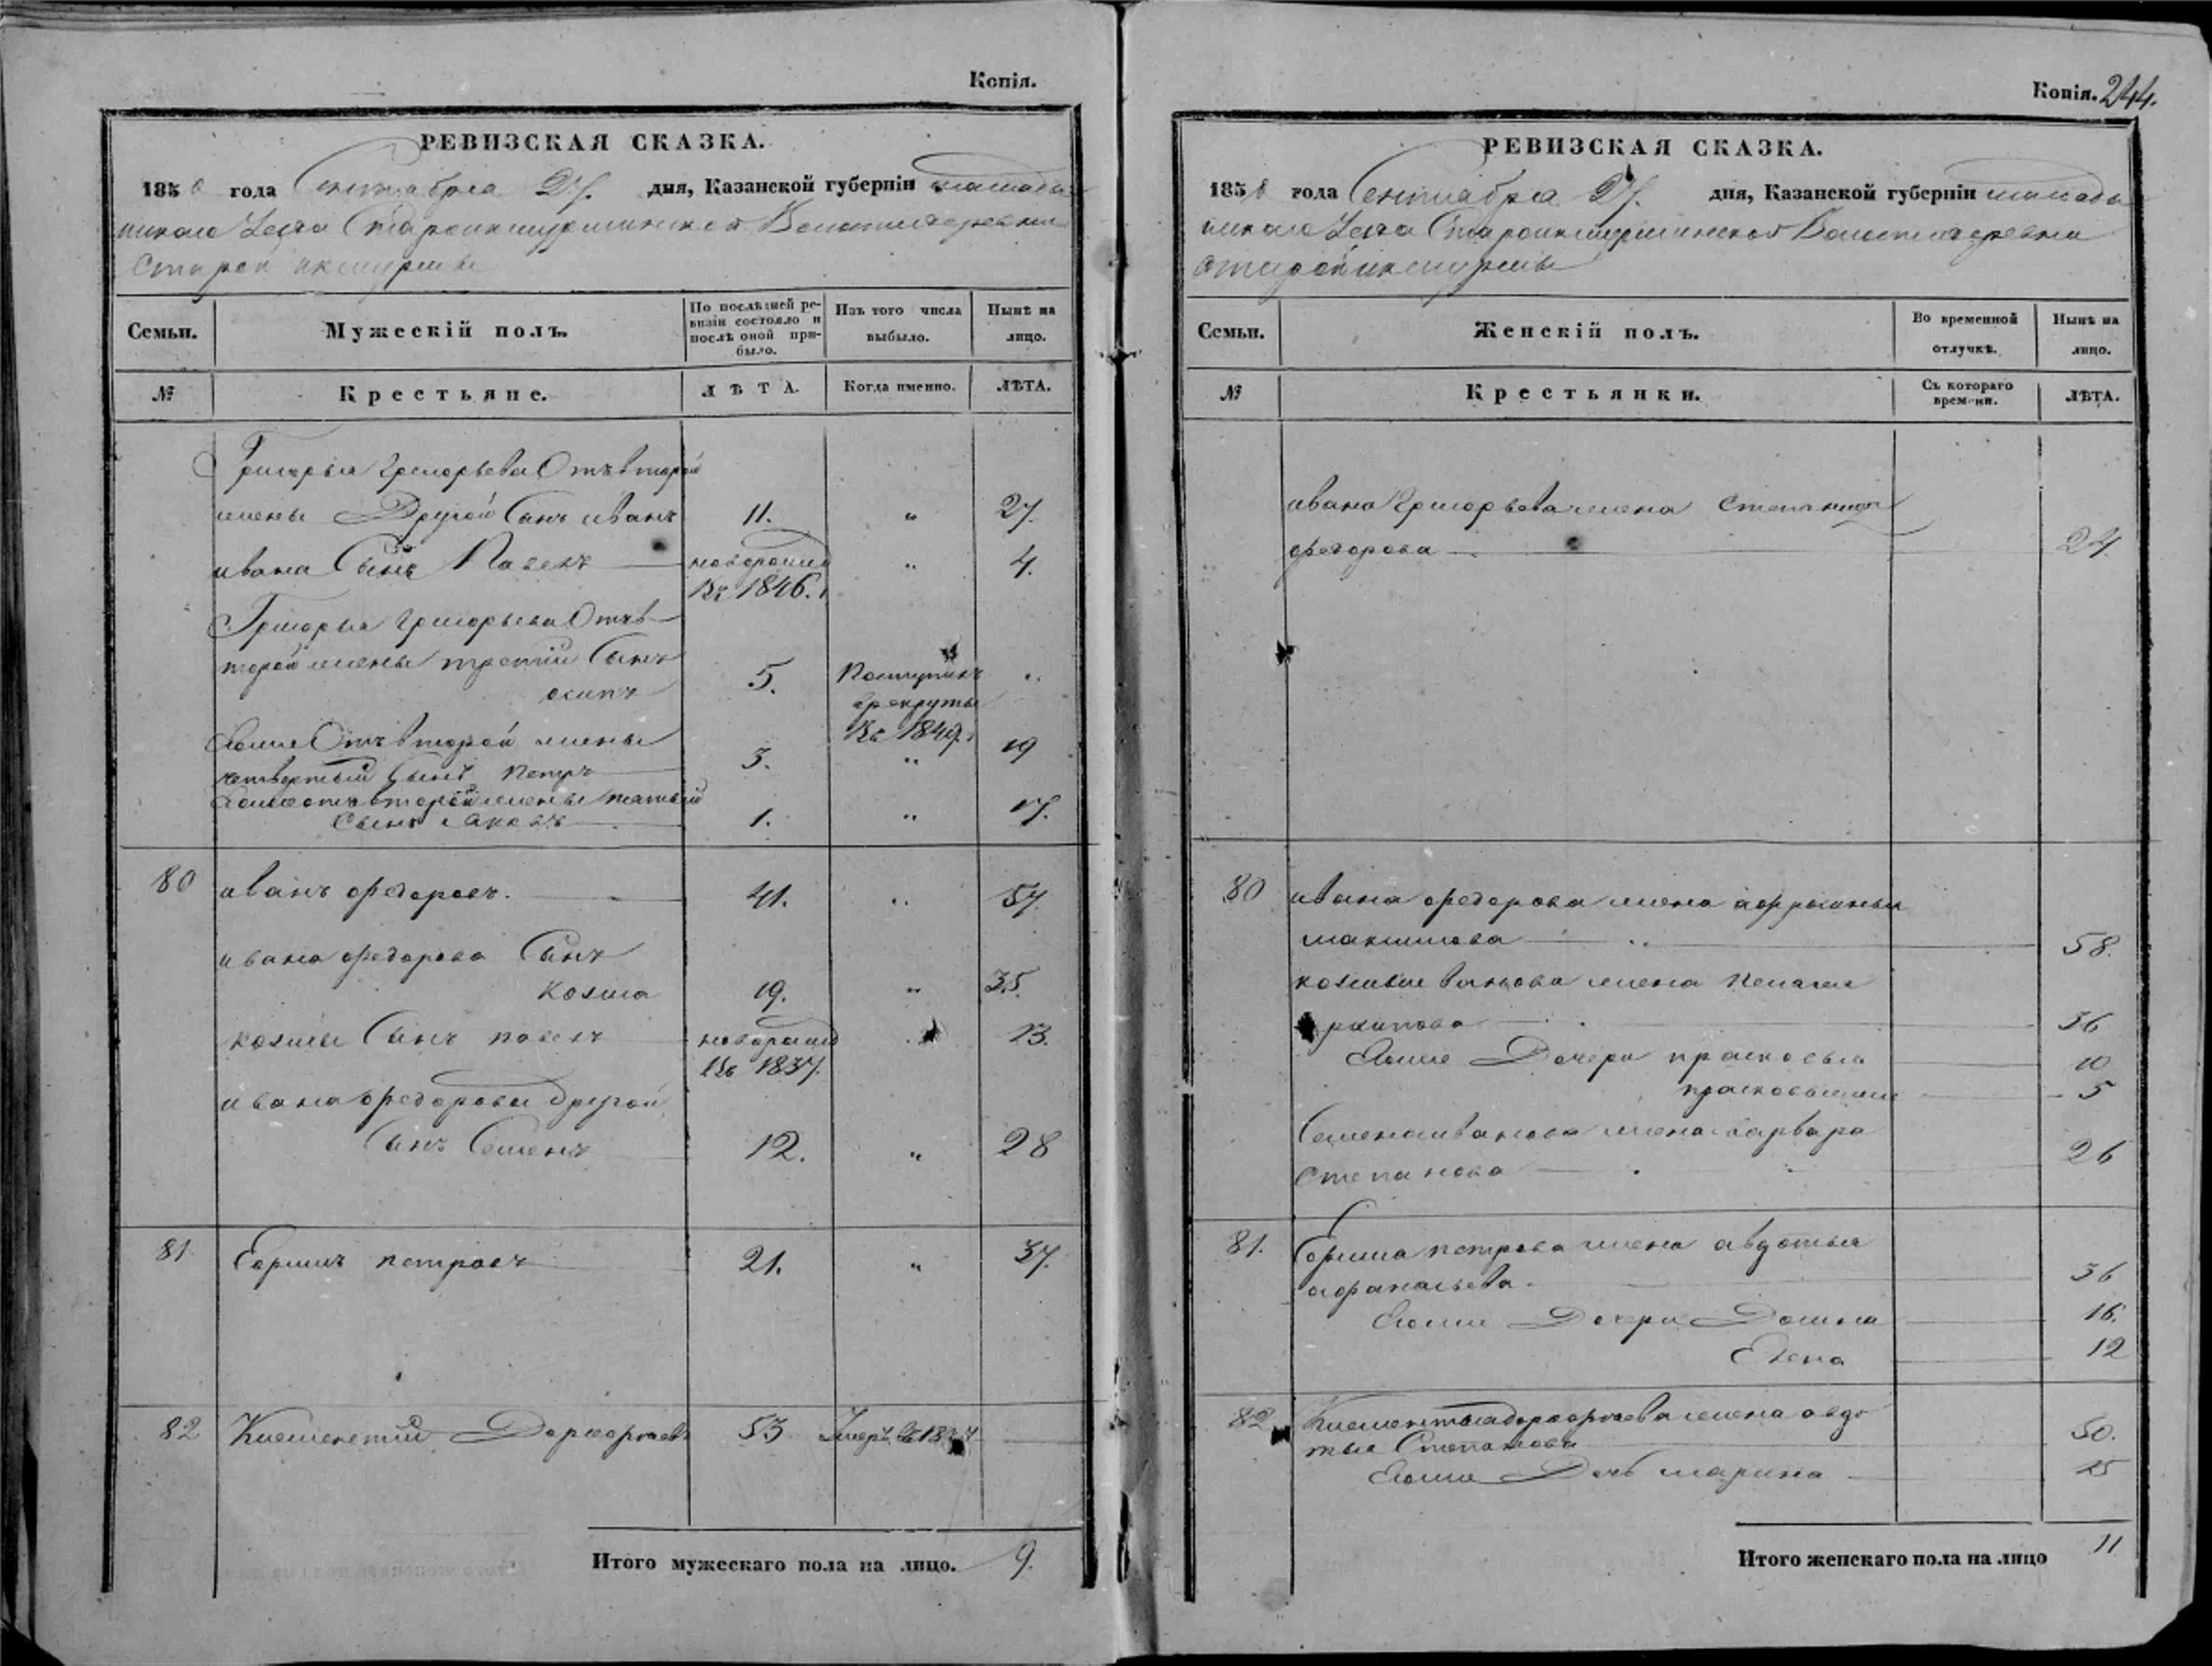 Копія.
РЕВИЗСКАЯ СКАЗКА.
1850 года Сентября 27. дня, Казанской губерніи мамады
шскаго уезда Староикшурминской Волости деревни
Старой икшурмы
Семьи.
Мужескій полъ.
По послѣдней ре-
визіи состояло и
послѣ оной при-
было.
Изъ того числа
выбыло.
Нынѣ на
лицо.
№
Крестьяне.
ЛѢТА.
Когда именно.
ЛѢТА.
Григорья Григорьева Отъ второй
жены Другой Сынъ иванъ 11. " 27.
ивана Сынъ Павелъ новорожд " 4.
Въ 1846.
Григорья Григорьева Отъ в
торой жены третий Сынъ
осипъ 5. Поступилъ "
врекруты
Въ 1849.
Егоже Отъ второй жены
четвертый Сынъ Петръ 3. " 19
Егоже отъ второй жены пятый
Сынъ яковъ 1. " 17.
80 иванъ федоровъ. 41. " 57
ивана федорова Сынъ
козма 19. " 35.
козмы Сынъ павелъ новорожд " 13.
Въ 1837.
ивана федорова другой
Сынъ Семенъ 12. " 28
81 Ефимъ петровъ 21. " 37.
82 Климентий Дорофеевъ 53 Умеръ въ
Итого мужескаго пола на лицо. 9.
Копія. 244.
РЕВИЗСКАЯ СКАЗКА.
1850 года Сентября 27. дня, Казанской губерніи мамады
шскаго уезда Староикшурминской Волости деревни
Старой икшурмы
Семьи.
Женскій полъ.
Во временной
отлучкѣ.
Нынѣ на
лицо.
№
Крестьянки.
Съ котораго
времени.
ЛѢТА.
ивана Григорьева жена Степанида
федорова 24.
80 ивана федорова жена
максимова 58.
козмы иванова жена Пелагея
36
Егоже Дочери прасковья 10
прасковья 5
Семена иванова жена варвара
Степанова 26
81. Ефима петрова жена авдотья
афанасьева 36
Егоже Дочери Домна 16.
Елена 12
82 Климентья дорофеева жена авдо
тья Степанова 50.
Егоже Дочь марина 15
Итого женскаго пола на лицо 11